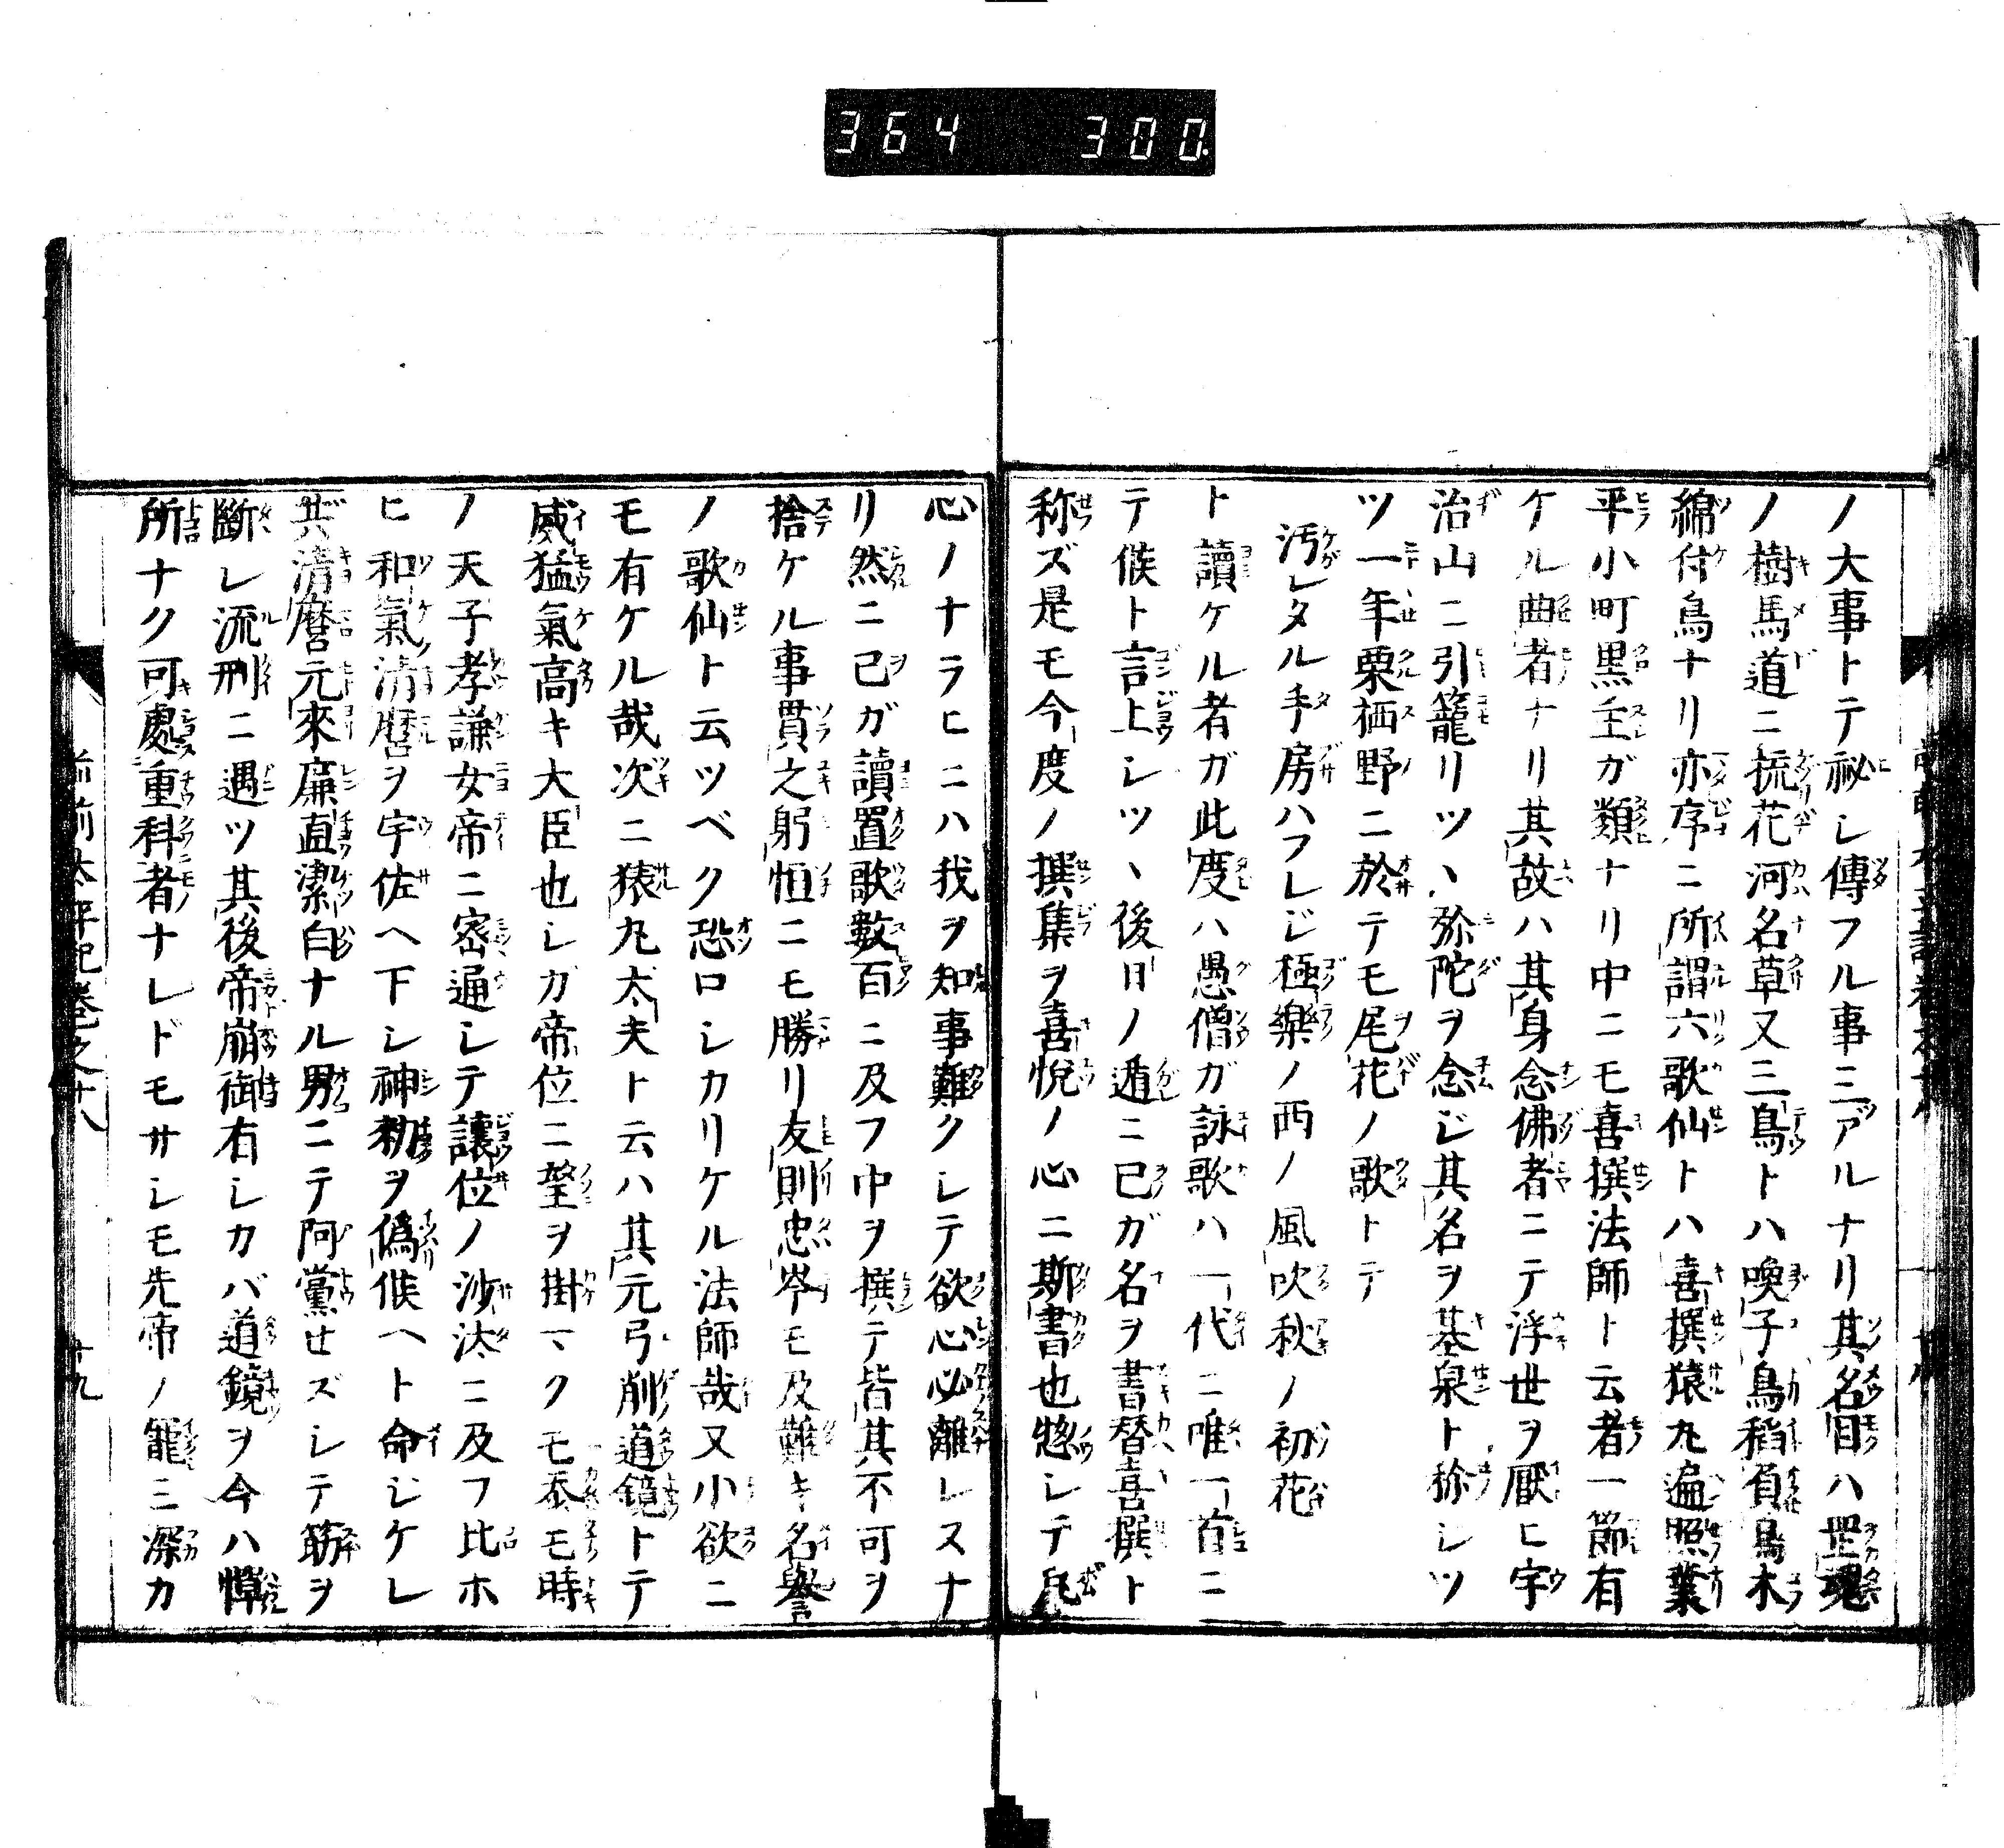 364 300.
ノ大事トテ祕シ傳フル事三アルナリ其名目ハ罡魂
ノ樹馬道ニ梳花河名草又三鳥トハ喚子鳥稻負鳥木
綿付鳥ナリ亦序ニ所謂六歌仙トハ喜撰猿丸遍照業
平小町黒主ガ類ナリ中ニモ喜撰法師ト云者一節有
ケル曲者ナリ其故ハ其身念佛者ニテ浮世ヲ厭ヒ宇
治山ニ引籠リツヽ弥陀ヲ念ジ其名ヲ基泉ト称シツ
ツ一年栗栖野ニ於テモ尾花ノ歌トテ
汚レタル手房ハフレジ極樂ノ西ノ風吹秋ノ初花
ト讀ケル者ガ此度ハ愚僧ガ詠歌ハ一代ニ唯一首ニ
テ候ト言上シツヽ後日ノ遁ニ已ガ名ヲ書替喜撰ト
称ズ是モ今度ノ撰集ヲ喜悅ノ心ニ斯書也惣シテ凡
心ノナラヒニハ我ヲ知事難クシテ欲心必離レスナ
リ然ニ己ガ讀置歌數百ニ及フ中ヲ撰テ皆其不可ヲ
捨ケル事貫之躬恒ニモ勝リ友則忠岑モ及難キ名譽
ノ歌仙ト云ツベク恐ロシカリケル法師哉又小欲ニ
モ有ケル哉次ニ猿丸太夫ト云ハ其元弓削道鏡トテ
威猛氣高キ大臣也シガ帝位ニ望ヲ掛マクモ忝モ時
ノ天子孝謙女帝ニ密通シテ讓位ノ沙汰ニ及フ比ホ
ヒ和氣清麿ヲ宇佐ヘ下シ神勅ヲ僞候ヘト命ジケレ
共清麿元來廉直潔白ナル男ニテ阿黨セズシテ筋ヲ
斷レ流刑ニ遇ツ其後帝崩御有シカバ道鏡ヲ今ハ憚
所ナク可處重科者ナレドモサシモ先帝ノ寵三深カ
前前太平記卷之十八 廿九